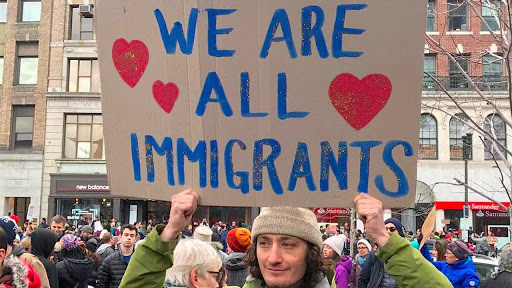 WE ARE
ALL
IMMIGRANTS
new balance
Santander
Santander